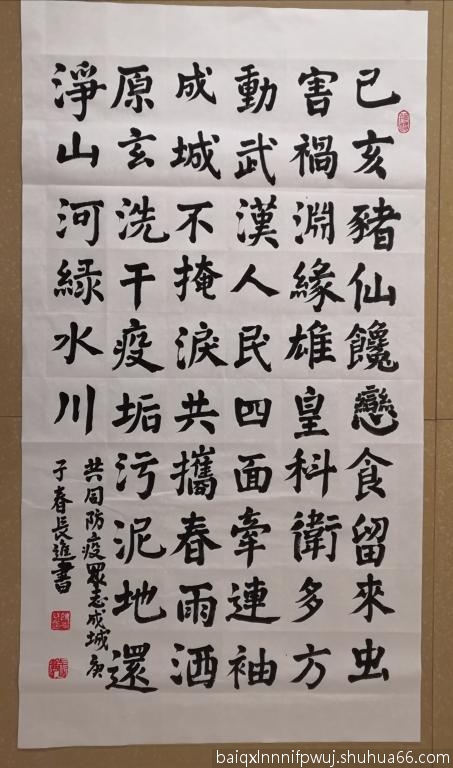 己亥豬仙饞戀食留來虫
害禍淵緣雄皇科衛多方
動武漢人民四面牽連袖
成城不掩淚共攜春雨洒
原玄洗干疫垢污泥地還
淨山河緑水川
共同防疫眾志成城庚
子春長進書
baiqxlnnnifpwuj.shuhua66.com